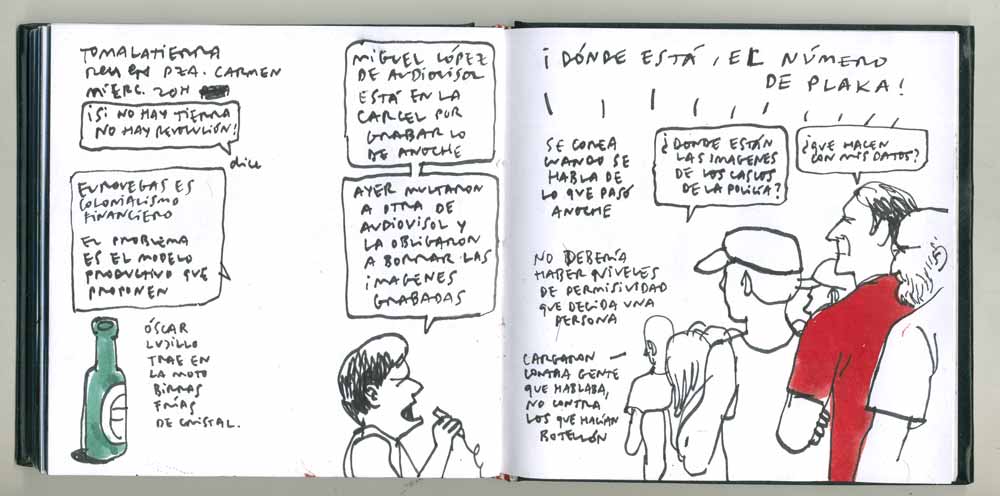 TOMALATIERRA
REU EN PZA. CARMEN
MIERC. 20H
¡SI NO HAY TIERRA
NO HAY REVOLUCIÓN!
dice
EUROVEGAS ES
COLONIALISMO
FINANCIERO
EL PROBLEMA
ES EL MODELO
PRODUCTIVO QUE
PROPONEN
ÓSCAR
LUDILLO
TRAE EN
LA MOTO
BIRRAS
FRÍAS
DE CRISTAL.
MIGUEL LÓPEZ
DE AUDIOVISOL
ESTÁ EN LA
CARCEL POR
GRABAR LO
DE ANOCHE
AYER MULTARON
A OTRA DE
AUDIOVISOL Y
LA OBLIGARON
A BORRAR LAS
IMAGENES
GRABADAS
¡DÓNDE ESTÁ, EL NÚMERO
DE PLAKA!
SE COREA
CUANDO SE
HABLA DE
LO QUE PASÓ
ANOCHE
¿DONDE ESTÁN
LAS IMAGENES
DE LOS CASCOS
DE LA POLICÍA?
¿QUE HACEN
CON MIS DATOS?
NO DEBERÍA
HABER NIVELES
DE PERMISIVIDAD
QUE DECIDA UNA
PERSONA
CARGARON
CONTRA GENTE
QUE HABLABA,
NO CONTRA
LOS QUE HACÍAN
BOTELLÓN